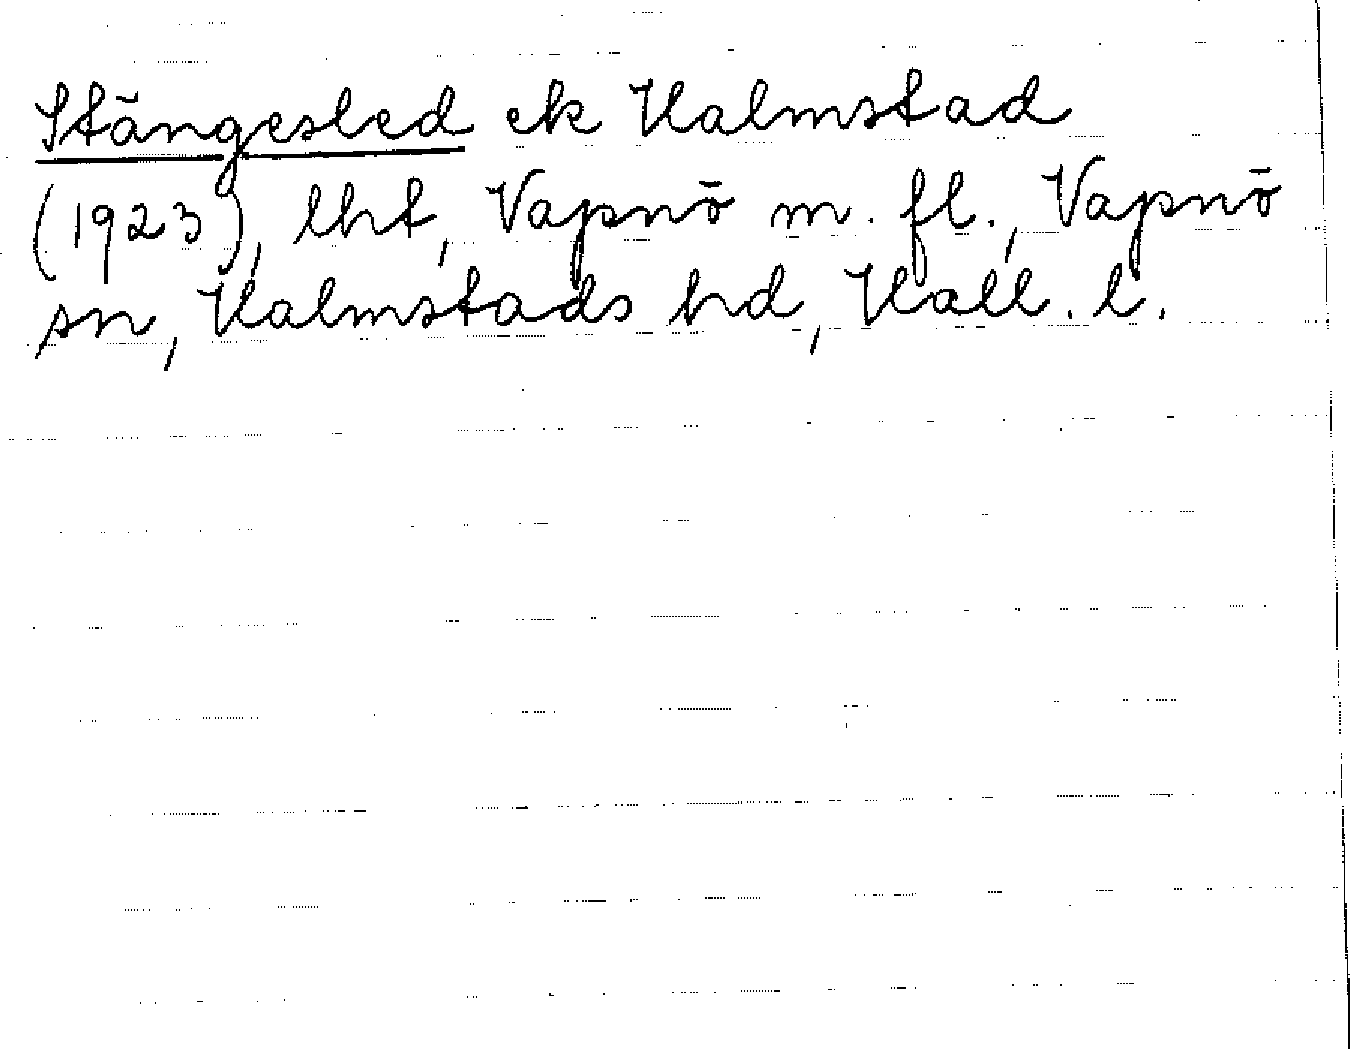 Stängesled ek Halmstad
(1923), lht, Vapnö m. fl., Vapnö
sn, Halmstads hd, Hall. l.